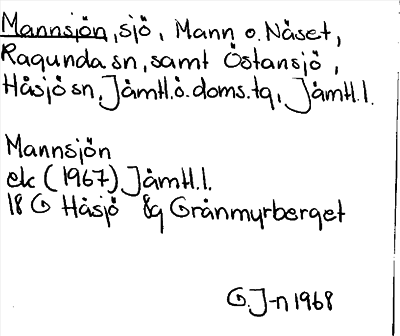 Mannsjön, sjö, Mann o. Näset,
Ragunda sn, samt Östansjö,
Håsjö sn, Jämtl.ö.doms.tg, Jämtl.l.
Mannsjön
ek (1967) Jämtl.l.
18 G Håsjö 8g Grånmyrberget
G. J-n 1968